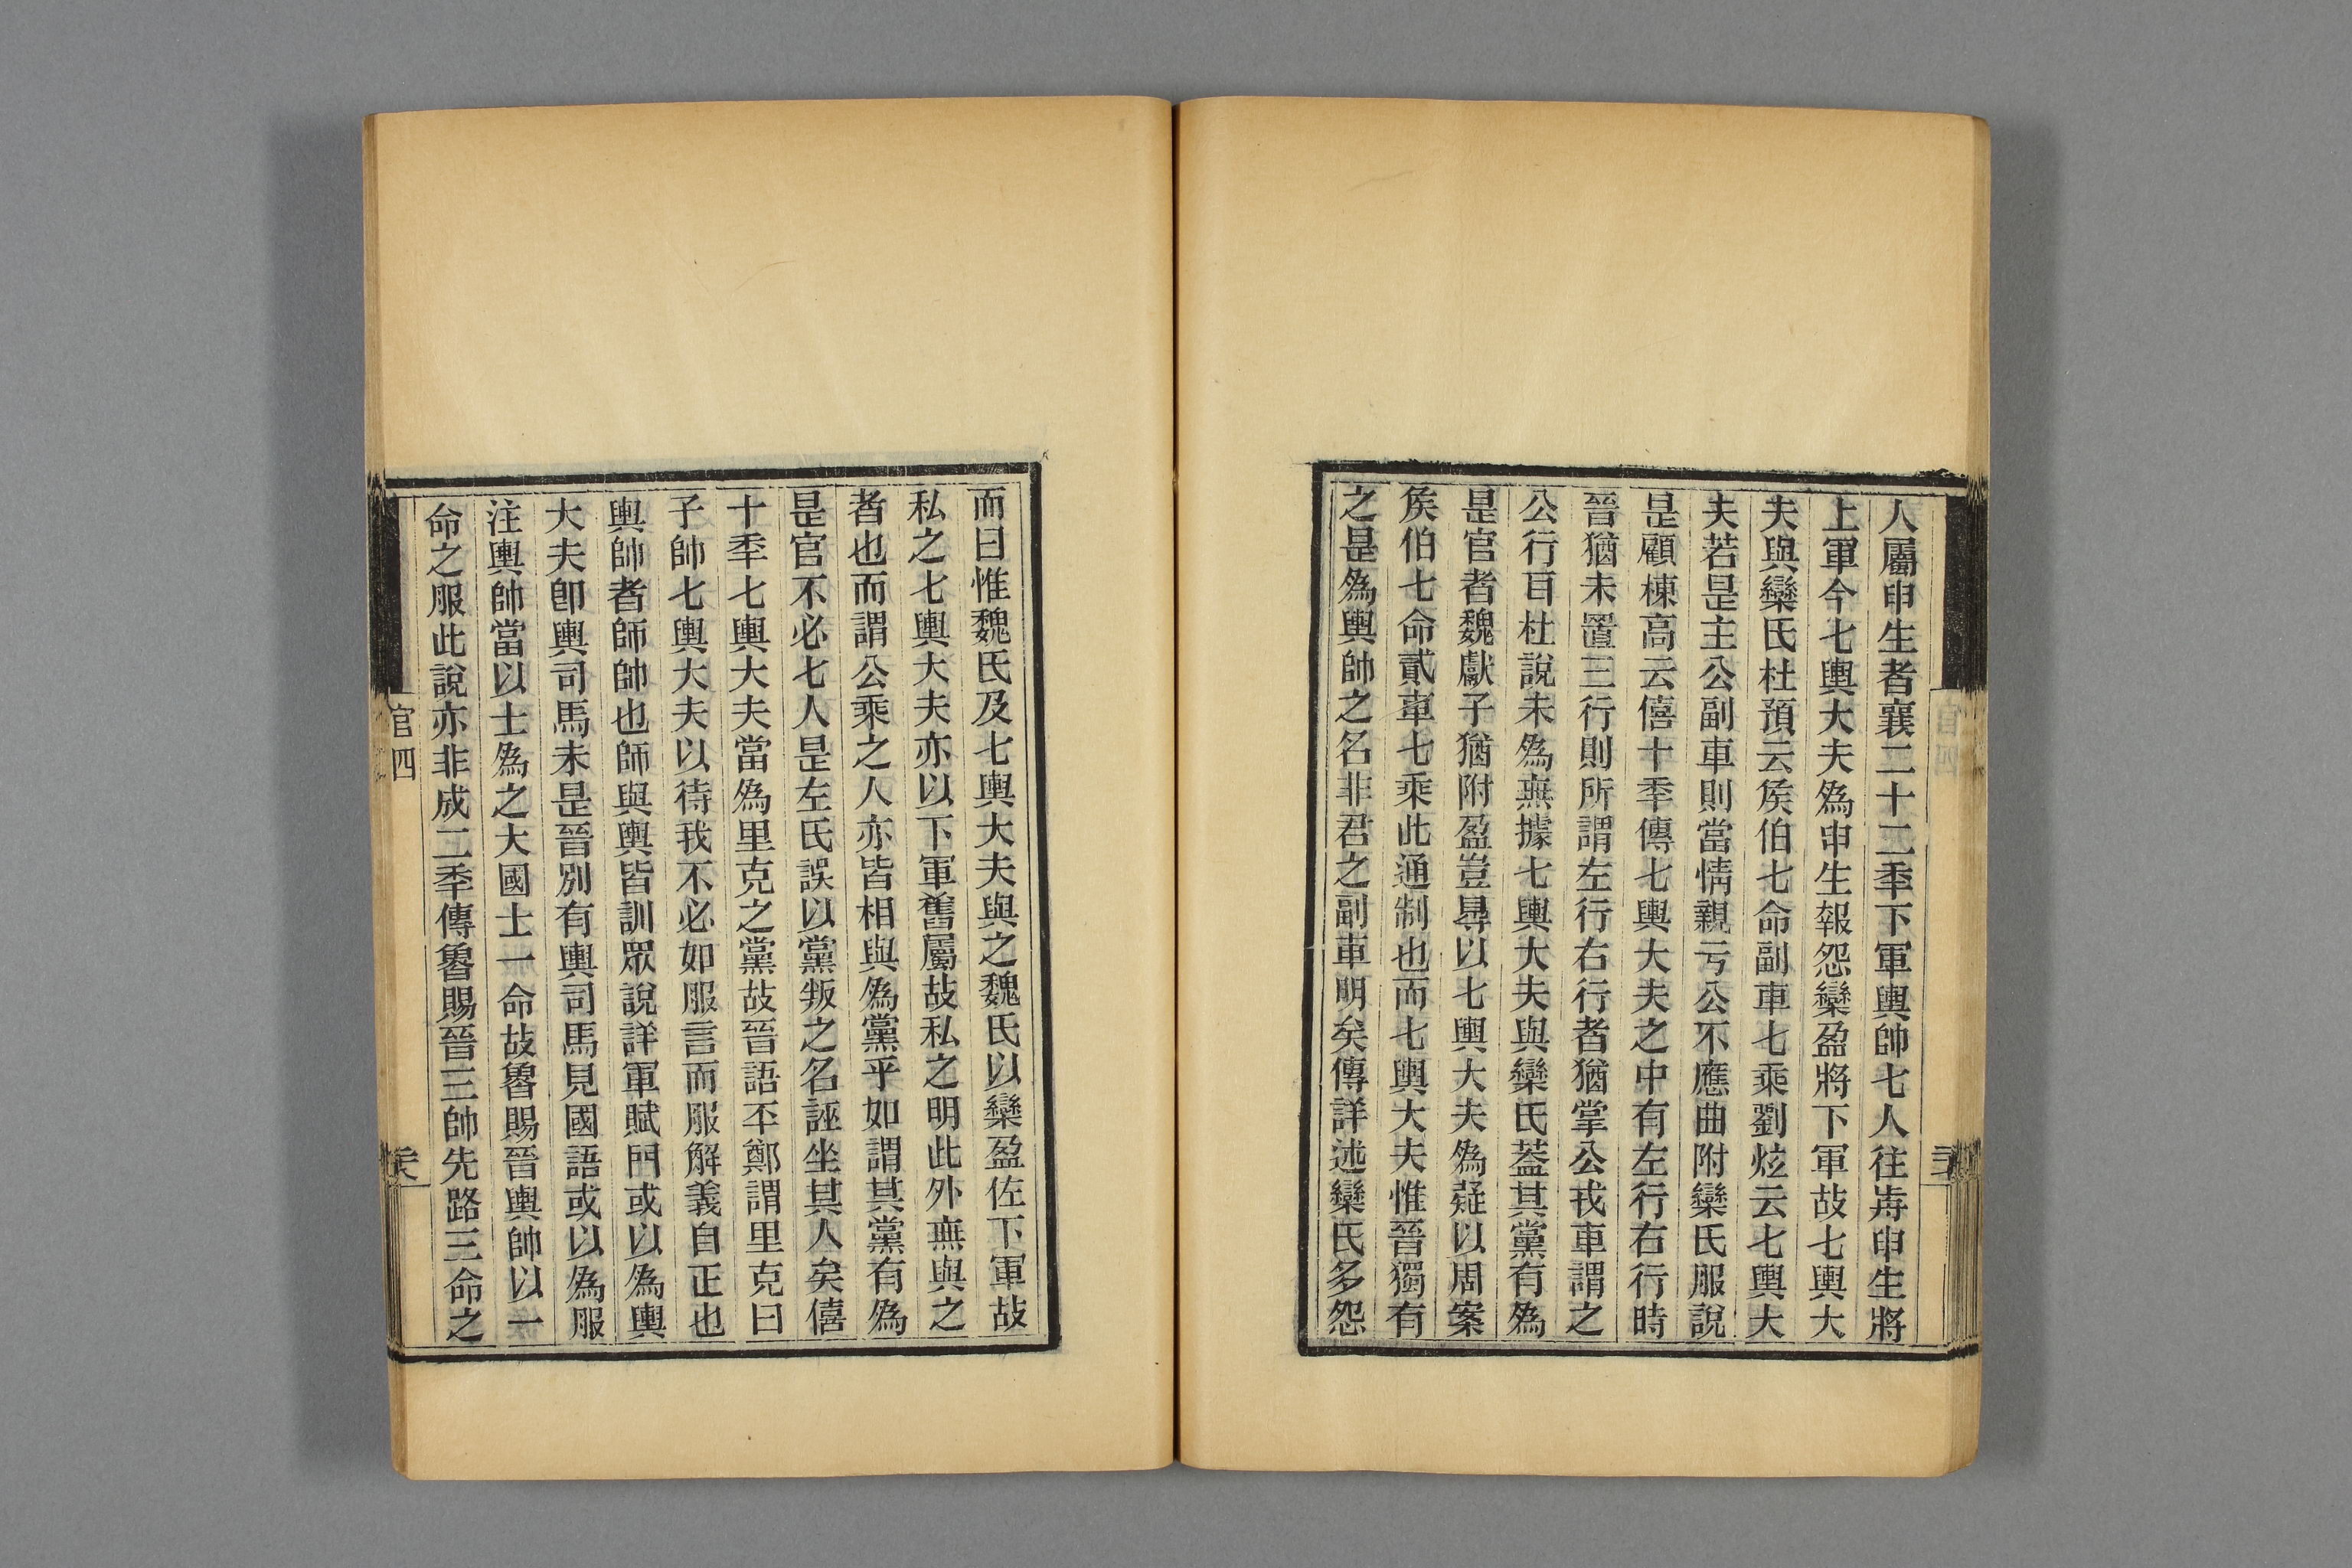 人屬申生者襄二十二秊下軍輿帥七人往歬申生將
上軍今七輿大夫爲申生報怨欒盈將下軍故七輿大
夫與欒氏杜預云矦伯七命副車七乘劉炫云七輿大
夫若是主公副車則當情親亏公不應曲附欒氏服說
是顧棟高云僖十秊傳七輿大夫之中有左行右行時
晉猶未置三行則所謂左行右行者猶掌公戎車謂之
公行耳杜說未爲無據七輿大夫與欒氏蓋其黨有爲
是官者魏獻子猶附盈豈㝵以七輿大夫爲疑以周案
矦伯七命貳車七乘此通制也而七輿大夫惟晉獨有
之是爲輿帥之名非君之副車明矣傳詳述欒氏多怨
而曰惟魏氏及七輿大夫與之魏氏以欒盈佐下軍故
私之七輿大夫亦以下軍舊屬故私之明此外無與之
者也而謂公乘之人亦皆相與爲黨乎如謂其黨有爲
是官不必七人是左氏誤以黨叛之名誣坐其人矣僖
十秊七輿大夫當爲里克之黨故晉語丕鄭謂里克曰
子帥七輿大夫以待我不必如服言而服解義自正也
輿帥者師帥也師與輿皆訓眾說詳軍賦門或以爲輿
大夫卽輿司馬未是晉別有輿司馬見國語或以爲服
注輿帥當以士爲之大國士一命故魯賜晉輿帥以一
命之服此說亦非成二秊傳魯賜晉三帥先路三命之
官四